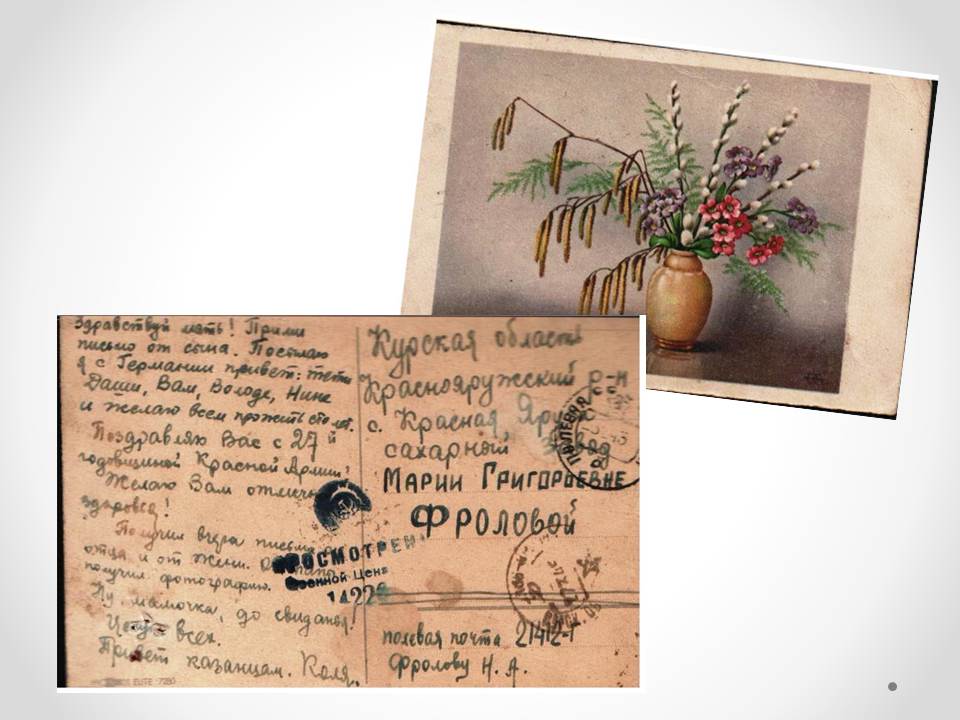 Здравствуй мать! Прими
письмо от сына. Посылаю
я с Германии привет: тети
Даши, Вам, Володе, Нине
и желаю всем прожить сто лет.
Поздравляю Вас с 27й
годовщиной Красной Армии!
Желаю Вам отличного
здоровья!
Получил вчера письмо
отца и от жени.
получил фотографию.
Ну, мамочка, до свиданья!
Целую всех.
Привет казанцам. Коля.
ELITE 7280
ПРОСМОТРЕНО
Военной Ценз
14228
Курская область
Краснояружский р-н
с. Красная Яруга
сахарный завод
Марии Григорьевне
Фроловой
ПОЛЕВАЯ
полевая почта 21412-т
Фролову Н. А.